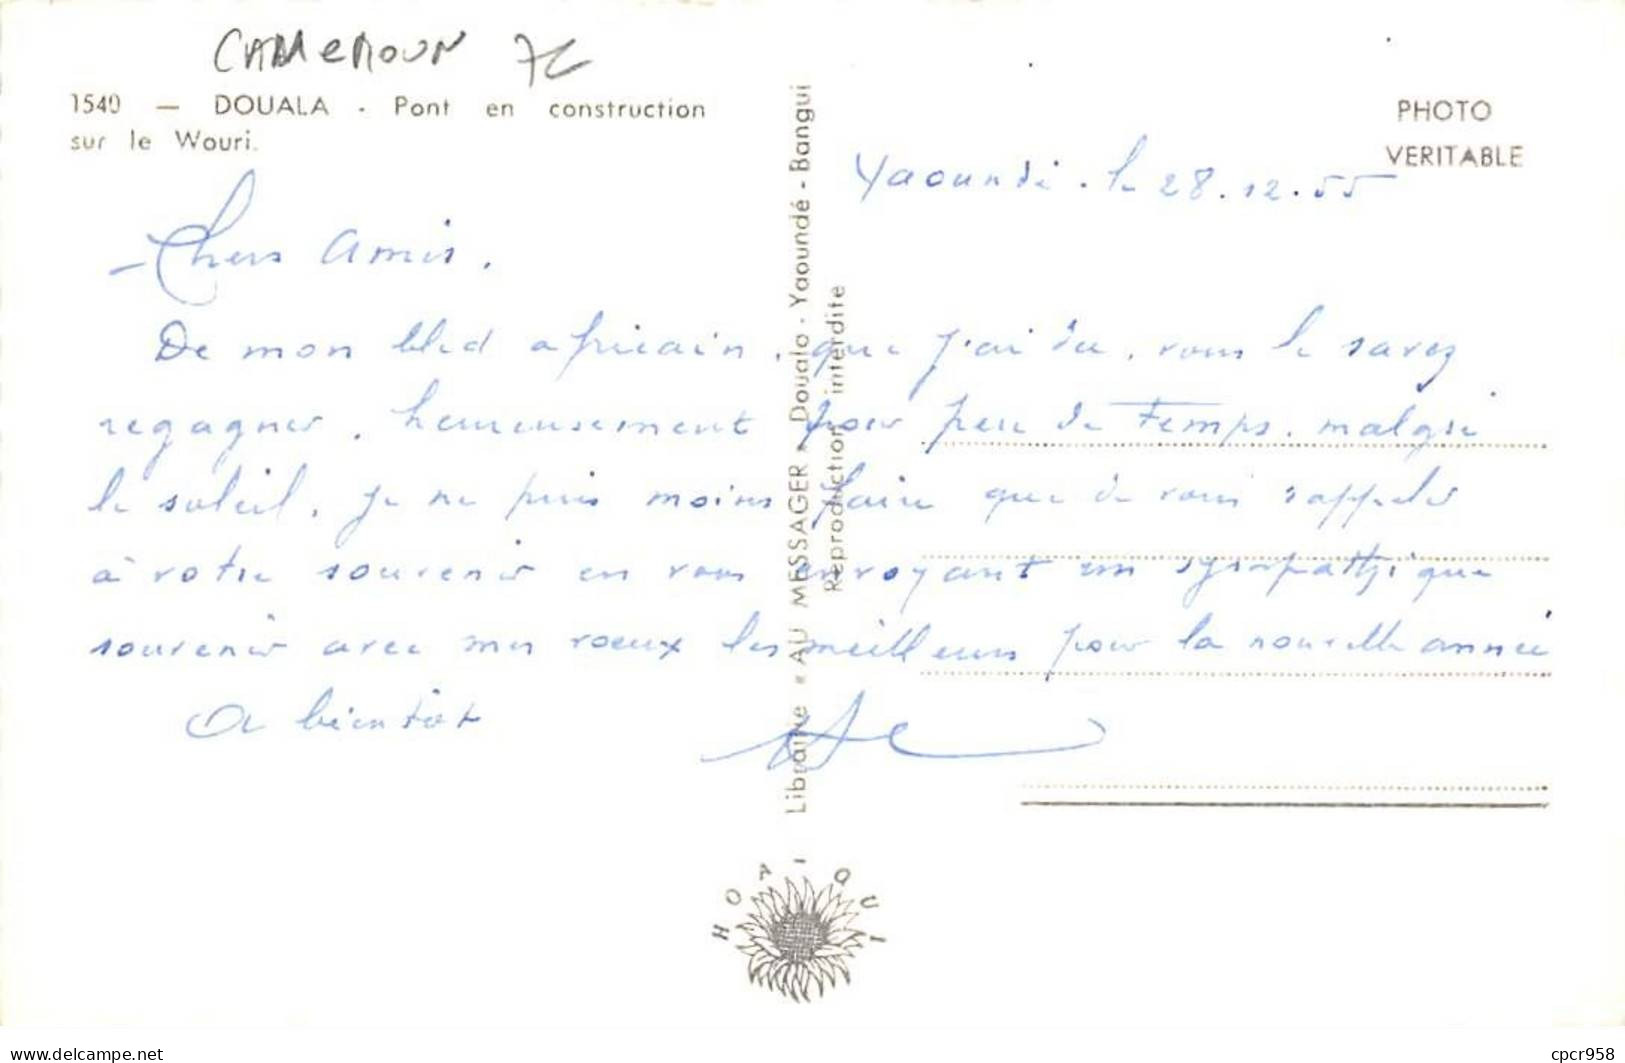 CAMEROUN 7€
1540 — DOUALA - Pont en construction
sur le Wouri.
PHOTO
VERITABLE
Yaoundé. le 28.12.55
Chers Amis.
De mon bled africain, que j'ai dû, vous le savez
regagner, heureusement pour peu de temps. malgré
le soleil, je ne puis moins faire que de vous rappeler
à votre souvenir en vous envoyant un sympathique
souvenir avec mes voeux les meilleurs pour la nouvelle année
A bientôt
Librairie « AU MESSAGER » Douala - Yaoundé - Bangui
Reproduction interdite
HOA-QUI
delcampe.net
cpcr958